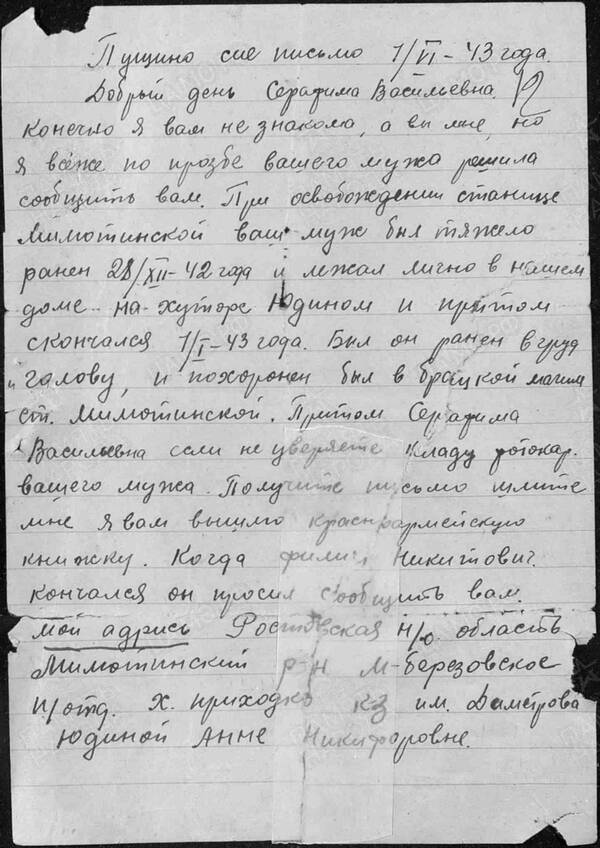 Пущино сие письмо 1/VI-43 года.
Добрый день Серафима Васильевна.
Конечно я вам не знакома, а вы мне, но
я всёже по прозбе вашего мужа решила
сообщить вам. При освобождении станице
Милютинской ваш муж был тяжело
ранен 28/XII-42 года и лежал лично в нашем
доме на хуторе Юдином и притом
скончался 1/I-43 года. Был он ранен в груд
и голову, и похоронен был в брацкой
ст. Милютинской. Притом Серафима
Васильевна если не уверяете кладу фотокар.
вашего мужа. Получите письмо шлите
мне я вам вышлю красноармейскую
книжку. Когда Никитович.
кончался он просил сообщить вам.
мой адрись Ростовская область
Милютинский р-н М-березовское
п/отд. х. приходко кз им. Даметрова
Юдиной Анне Никифоровне.